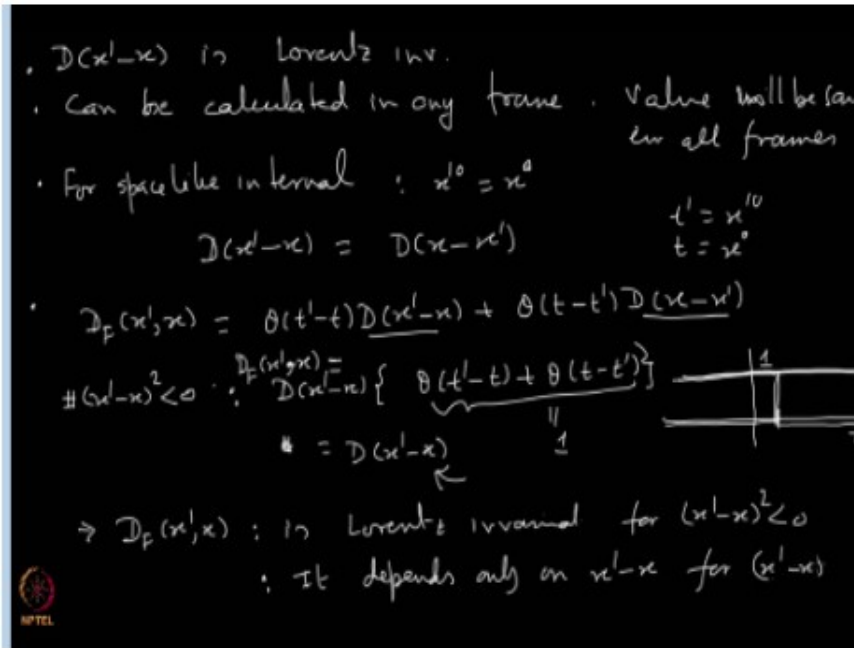 . D(x'-x) is Lorentz inv.
. Can be calculated in any frame . Value will be
in all frames
. For spacelike interval : x'⁰ = x⁰
t' = x'⁰
D(x'-x) = D(x-x')
t = x⁰
. D_F(x',x) = θ(t'-t)D(x'-x) + θ(t-t')D(x-x')
#(x'-x)²<0 : D_F(x',x) = D(x'-x){ θ(t'-t) + θ(t-t') }
1
= D(x'-x)
1
→ D_F(x',x) : is Lorentz invariant for (x'-x)²<0
: It depends only on x'-x for (x'-x)
NPTEL